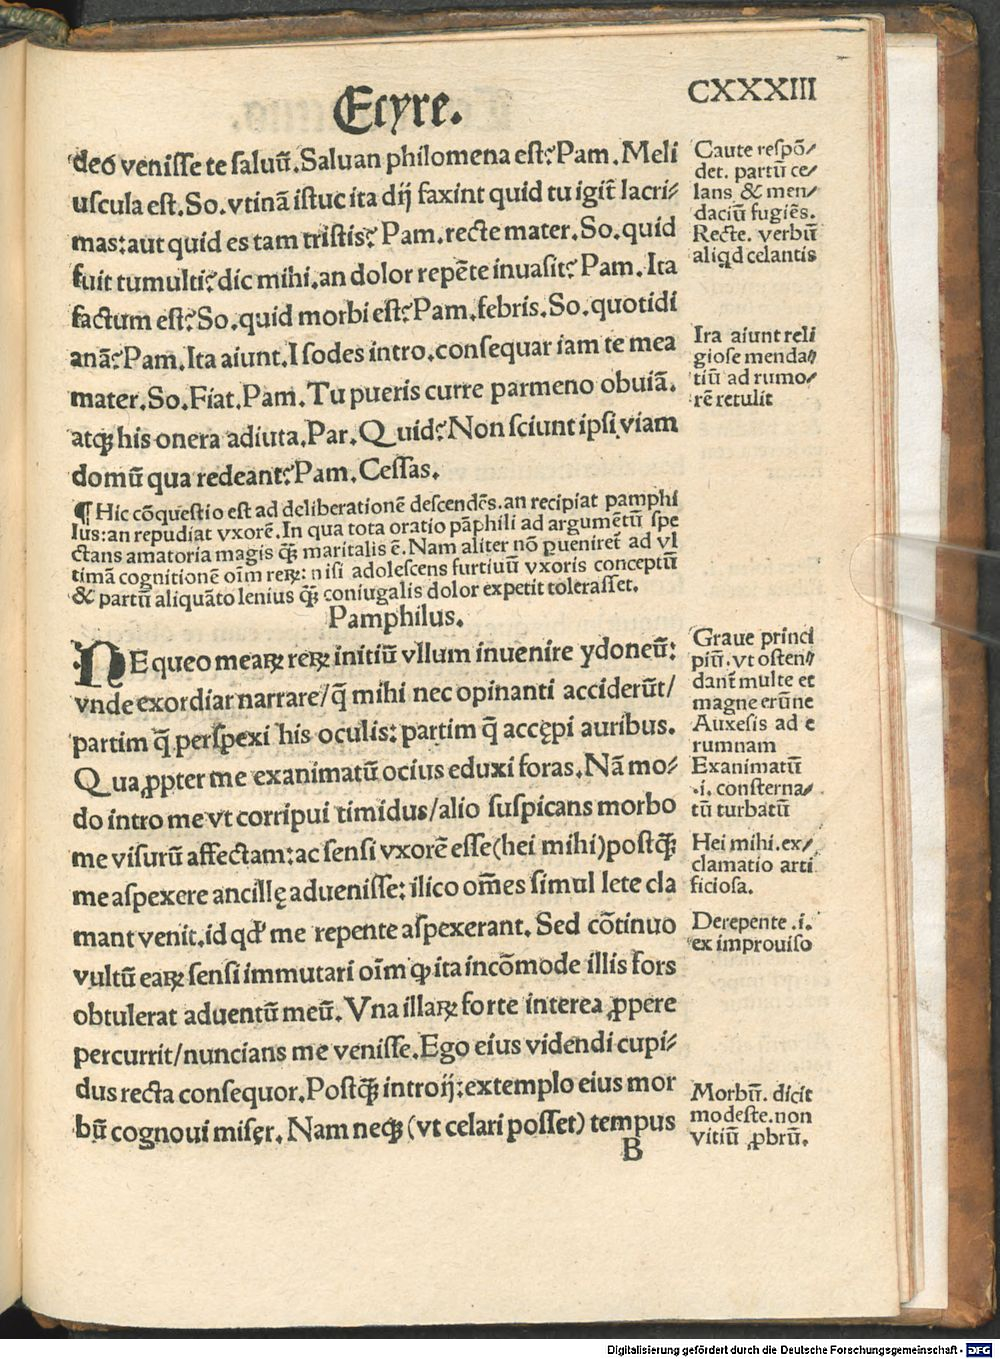 Ecyre.
CXXXIII
deo venisse te saluū. Saluan philomena est? Pam. Meli
uscula est. So. vtinā istuc ita dij faxint quid tu igit̄ lacri⸗
mas: aut quid es tam tristis? Pam. recte mater. So. quid
fuit tumulti? dic mihi. an dolor repēte inuasit? Pam. Ita
factum est? So. quid morbi est? Pam. febris. So. quotidi
anā? Pam. Ita aiunt. I sodes intro. consequar iam te mea
mater. So. Fiat. Pam. Tu pueris curre parmeno obuiā.
atqꝫ his onera adiuta. Par. Quid? Non sciunt ipsi viam
domū qua redeant? Pam. Cessas.
¶ Hic cōquestio est ad deliberationē descendēs. an recipiat pamphi
lus: an repudiat vxorē. In qua tota oratio pāphili ad argumētū spe
ctans amatoria magis qꝫ̄ maritalis ē. Nam aliter nō ꝑueniret̄ ad vl
timā cognitionē oīm rerꝝ: nisi adolescens furtiuū vxoris conceptū
& partū aliquāto lenius qꝫ̄ coniugalis dolor expetit tolerasset.
Pamphilus.
NEqueo mearꝝ rerꝝ initiū vllum inuenire ydoneū:
vnde exordiar narrare/ q̄ mihi nec opinanti acciderūt/
partim q̄ perspexi his oculis: partim q̄ accępi auribus.
Qua ꝓpter me exanimatū ocius eduxi foras. Nā mo⸗
do intro me vt corripui timidus/ alio suspicans morbo
me visurū affectam: ac sensi vxorē esse (hei mihi) postqꝫ̄
me aspexere ancillę aduenisse: ilico om̄es simul lete cla
mant venit. id qđ me repente aspexerant. Sed cōtinuo
vultū earꝝ sensi immutari oīm ꝙ ita incōmode illis fors
obtulerat aduentū meū. Vna illarꝝ forte interea ꝓpere
percurrit/ nuncians me venisse. Ego eius videndi cupi⸗
dus recta consequor. Postqꝫ̄ introij: extemplo eius mor
bū cognoui misęr. Nam neqꝫ (vt celari posset) tempus
B
Caute respō⸗
det. partū ce⸗
lans & men⸗
daciū fugiēs.
Recte. verbū
aliqd celantis
Ira aiunt reli
giose menda⸗
tiū ad rumo⸗
rē retulit
Graue princi
piū. vt osten⸗
dant̄ multe et
magne erūne
Auxesis ad e
rumnam
Exanimatū
.i. consterna⸗
tū turbatū
Hei mihi. ex⸗
clamatio arti
ficiosa.
Derepente .i.
ex improuiso
Morbū. dicit
modeste. non
vitiū ꝓbrū.
Digitalisierung gefördert durch die Deutsche Forschungsgemeinschaft - DFG